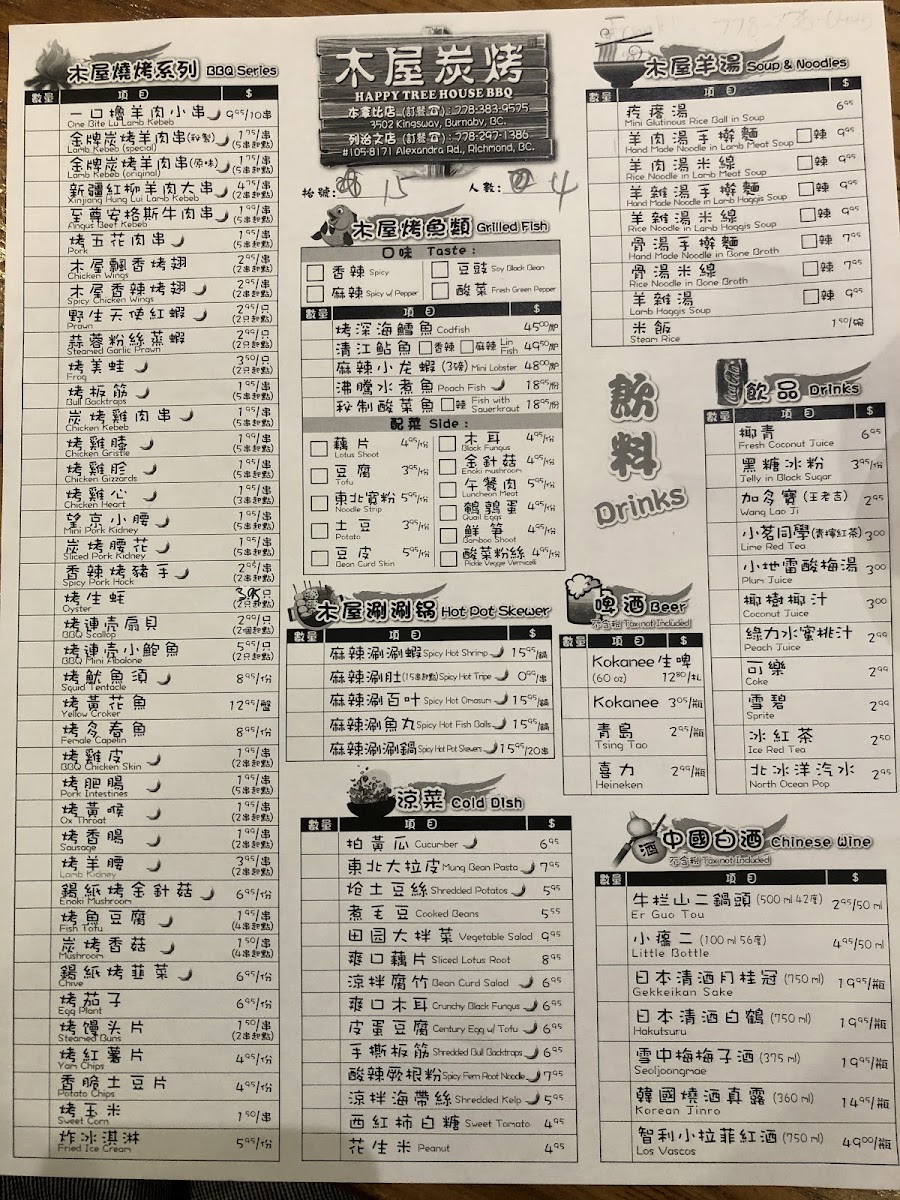 木屋燒烤系列 BBQ Series
數量 項目 $
一口擼羊肉小串 9⁹⁵/10串
One Bite Lu Lamb Kebeb
金牌炭烤羊肉串(秘製) 1⁷⁵/串
Lamb Kebeb (special) (5串起點)
金牌炭烤羊肉串(原味) 1⁷⁵/串
Lamb Kebeb (original) (5串起點)
新疆紅柳羊肉大串 4⁷⁵/串
Xinjiang Hung Lui Lamb Kebeb (2串起點)
至尊安格斯牛肉串 1⁹⁹/串
Angus Beef Kebeb (5串起點)
烤五花肉串 1⁹⁵/串
Pork (5串起點)
木屋飄香烤翅 2⁹⁵/串
Chicken Wings (2串起點)
木屋香辣烤翅 2⁹⁵/串
Spicy Chicken Wings (2串起點)
野生天使紅蝦 2⁹⁵/只
Prawn (2只起點)
蒜蓉粉絲蒸蝦 2⁹⁹/只
Steamed Garlic Prawn (2只起點)
烤美蛙 3⁵⁰/只
Frog (2只起點)
烤板筋 1⁹⁵/串
Bull Backtraps (5串起點)
炭烤雞肉串 1⁹⁵/串
Chicken Kebeb (5串起點)
烤雞膝 1⁹⁹/串
Chicken Gristle (5串起點)
烤雞胗 1⁹⁵/串
Chicken Gizzards (5串起點)
烤雞心 1⁹⁵/串
Chicken Heart (3串起點)
望京小腰 1⁹⁵/串
Mini Pork Kidney (5串起點)
炭烤腰花 1⁹⁵/串
Sliced Pork Kidney (5串起點)
香辣烤豬手 2⁹⁵/串
Spicy Pork Hock (2串起點)
烤生蚝
Oyster (2只起點)
烤連壳扇貝 2⁹⁹/只
BBQ Scallop (2個起點)
烤連壳小鮑魚 5⁹⁵/只
BBQ Mini Abalone (2只起點)
烤魷魚須 8⁹⁵/份
Squid Tentacle
烤黃花魚 12⁹⁵/蟹
Yellow Croker
烤多春魚 8⁹⁵/份
Female Capelin
烤雞皮 1⁹⁵/串
BBQ Chicken Skin (2串起點)
烤肥腸 1⁹⁵/串
Pork Intestines (5串起點)
烤黃喉 1⁹⁵/串
Ox Throat (2串起點)
烤香腸 1⁹⁵/串
Sausage (2串起點)
烤羊腰 3⁹⁵/串
Lamb Kidney (2串起點)
錫紙烤金針菇 6⁹⁵/份
Enoki Mushroom
烤魚豆腐 1⁹⁵/串
Fish Tofu (4串起點)
炭烤香菇 1⁵⁰/串
Mushroom (4串起點)
錫紙烤韮菜 6⁹⁵/份
Chive
烤茄子 6⁹⁵/份
Egg Plant
烤馒头片 1⁵⁰/串
Steamed Buns (2串起點)
烤紅薯片 4⁹⁵/份
Yam Chips
香脆土豆片 4⁹⁵/份
Potato Chips
烤玉米 1⁵⁰/串
Sweet Corn
炸冰淇淋 5⁹⁵/份
Fried Ice Cream
木屋炭烤
HAPPY TREE HOUSE BBQ
本拿比店 (訂餐☎): 778-383-9575
3502 Kingsway, Burnaby, BC.
列治文店 (訂餐☎): 778-297-1386
#105-8171 Alexandra Rd., Richmond, BC.
枱號: 15 人數: 4
木屋烤魚類 Grilled Fish
口味 Taste:
香辣 Spicy 豆豉 Soy Black Bean
麻辣 Spicy w/ Pepper 酸菜 Fresh Green Pepper
數量 項目 $
烤深海鱈魚 Codfish 45⁰⁰/
清江鮎魚 香辣 麻辣 Lin Fish 49⁵⁰/
麻辣小龙蝦 (3磅) Mini Lobster 48⁰⁰/
沸騰水煮魚 Poach Fish 18⁹⁵/份
秘制酸菜魚 辣 Fish with Sauerkraut 18⁹⁵/份
配菜 Side:
藕片 4⁹⁵/份 木耳 4⁹⁵/份
Lotus Shoot Black Fungus
豆腐 3⁹⁵/份 金針菇 4⁹⁵/份
Tofu Enoki mushroom
東北寬粉 5⁹⁵/份 午餐肉 5⁹⁵/份
Noodle Strip Luncheon Meat
土豆 3⁹⁵/份 鵪鶉蛋 4⁹⁵/份
Potato Quail Eggs
豆皮 5⁹⁵/份 鮮笋 4⁹⁵/份
Bean Curd Skin Bamboo Shoot
酸菜粉絲 4⁹⁵/份
Pickle Veggie Vermicelli
木屋涮涮锅 Hot Pot Skewer
數量 項目 $
麻辣涮涮蝦 Spicy Hot Shrimp 15⁹⁵/鍋
麻辣涮肚(15串起點) Spicy Hot Tripe 0⁹⁹/串
麻辣涮百叶 Spicy Hot Omasum 15⁹⁵/鍋
麻辣涮魚丸 Spicy Hot Fish Balls 15⁹⁵/鍋
麻辣涮涮鍋 Spicy Hot Pot Skewers 15⁹⁵/20串
涼菜 Cold Dish
數量 項目 $
拍黃瓜 Cucumber 6⁹⁵
東北大拉皮 Mung Bean Pasta 7⁹⁵
炝土豆絲 Shredded Potatos 5⁹⁵
煮毛豆 Cooked Beans 5⁵⁵
田园大拌菜 Vegetable Salad 9⁹⁵
爽口藕片 Sliced Lotus Root 8⁹⁵
涼拌腐竹 Bean Curd Salad 6⁹⁵
爽口木耳 Crunchy Black Fungus 6⁹⁵
皮蛋豆腐 Century Egg w/ Tofu 6⁹⁵
手撕板筋 Shredded Bull Backtraps 6⁹⁵
酸辣厥根粉 Spicy Fern Root Noodle 7⁹⁵
涼拌海帶絲 Shredded Kelp 5⁹⁵
西紅柿白糖 Sweet Tomato 4⁹⁵
花生米 Peanut 4⁹⁵
木屋羊湯 Soup & Noodles
數量 項目 $
疙瘩湯 6⁹⁵
Mini Glutinous Rice Ball in Soup
羊肉湯手擀麵 辣 9⁹⁵
Hand Made Noodle in Lamb Meat Soup
羊肉湯米線 辣 9⁹⁵
Rice Noodle in Lamb Meat Soup
羊雜湯手擀麵 辣 9⁹⁵
Hand Made Noodle in Lamb Haggis Soup
羊雜湯米線 辣 9⁹⁵
Rice Noodle in Lamb Haggis Soup
骨湯手擀麵 辣 7⁹⁵
Hand Made Noodle in Bone Broth
骨湯米線 辣 7⁹⁵
Rice Noodle in Bone Broth
羊雜湯 辣 9⁹⁵
Lamb Haggis Soup
米飯 1⁵⁰/碗
Steam Rice
飲料
Drinks
Coca-Cola
飲品 Drinks
數量 項目 $
椰青 6⁹⁵
Fresh Coconut Juice
黑糖冰粉 3⁹⁵/份
Jelly in Black Sugar
加多寶 (王老吉) 2⁹⁵
Wang Lao Ji
小茗同學(青檸紅茶) 3⁰⁰
Lime Red Tea
小地雷酸梅湯 3⁰⁰
Plum Juice
椰樹椰汁 3⁰⁰
Coconut Juice
綠力水蜜桃汁 2⁹⁹
Peach Juice
可樂 2⁹⁹
Coke
雪碧 2⁹⁹
Sprite
冰紅茶 2⁵⁰
Ice Red Tea
北冰洋汽水 2⁹⁵
North Ocean Pop
啤酒 Beer
不含稅 Tax not Included
數量 項目 $
Kokanee 生啤
(60 oz) 12⁸⁰/扎
Kokanee 3⁰⁵/瓶
青島 2⁹⁵/瓶
Tsing Tao
喜力 2⁹⁹/瓶
Heineken
酒 中國白酒 Chinese Wine
不含稅 Tax not Included
數量 項目 $
牛栏山二鍋頭 (500 ml 42度) 2⁹⁵/50 ml
Er Guo Tou
小瓶二 (100 ml 56度) 4⁹⁵/50 ml
Little Bottle
日本清酒月桂冠 (750 ml) 19⁹⁵/瓶
Gekkeikan Sake
日本清酒白鶴 (750 ml) 19⁹⁵/瓶
Hakutsuru
雪中梅梅子酒 (375 ml) 19⁹⁵/瓶
Seoljoongmae
韓國燒酒真露 (360 ml) 14⁹⁵/瓶
Korean Jinro
智利小拉菲紅酒 (750 ml) 49⁰⁰/瓶
Los Vascos